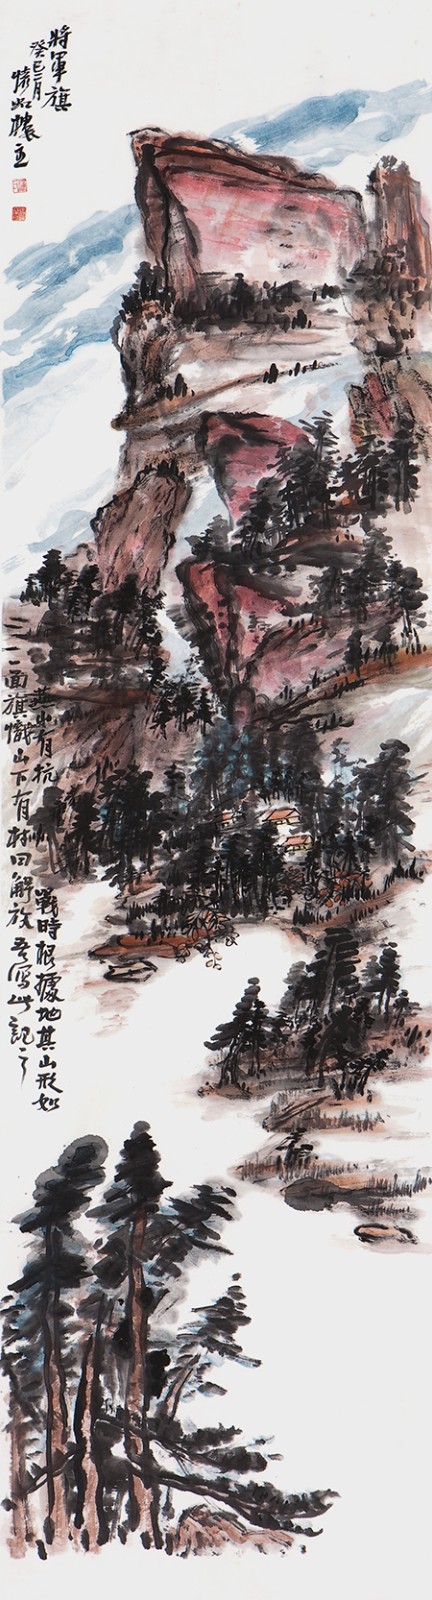 將軍旗
癸巳二月
懷虹樓主
燕山有抗戰時根據地其山形如
三面旗幟山下有村曰解放吾寫此記之